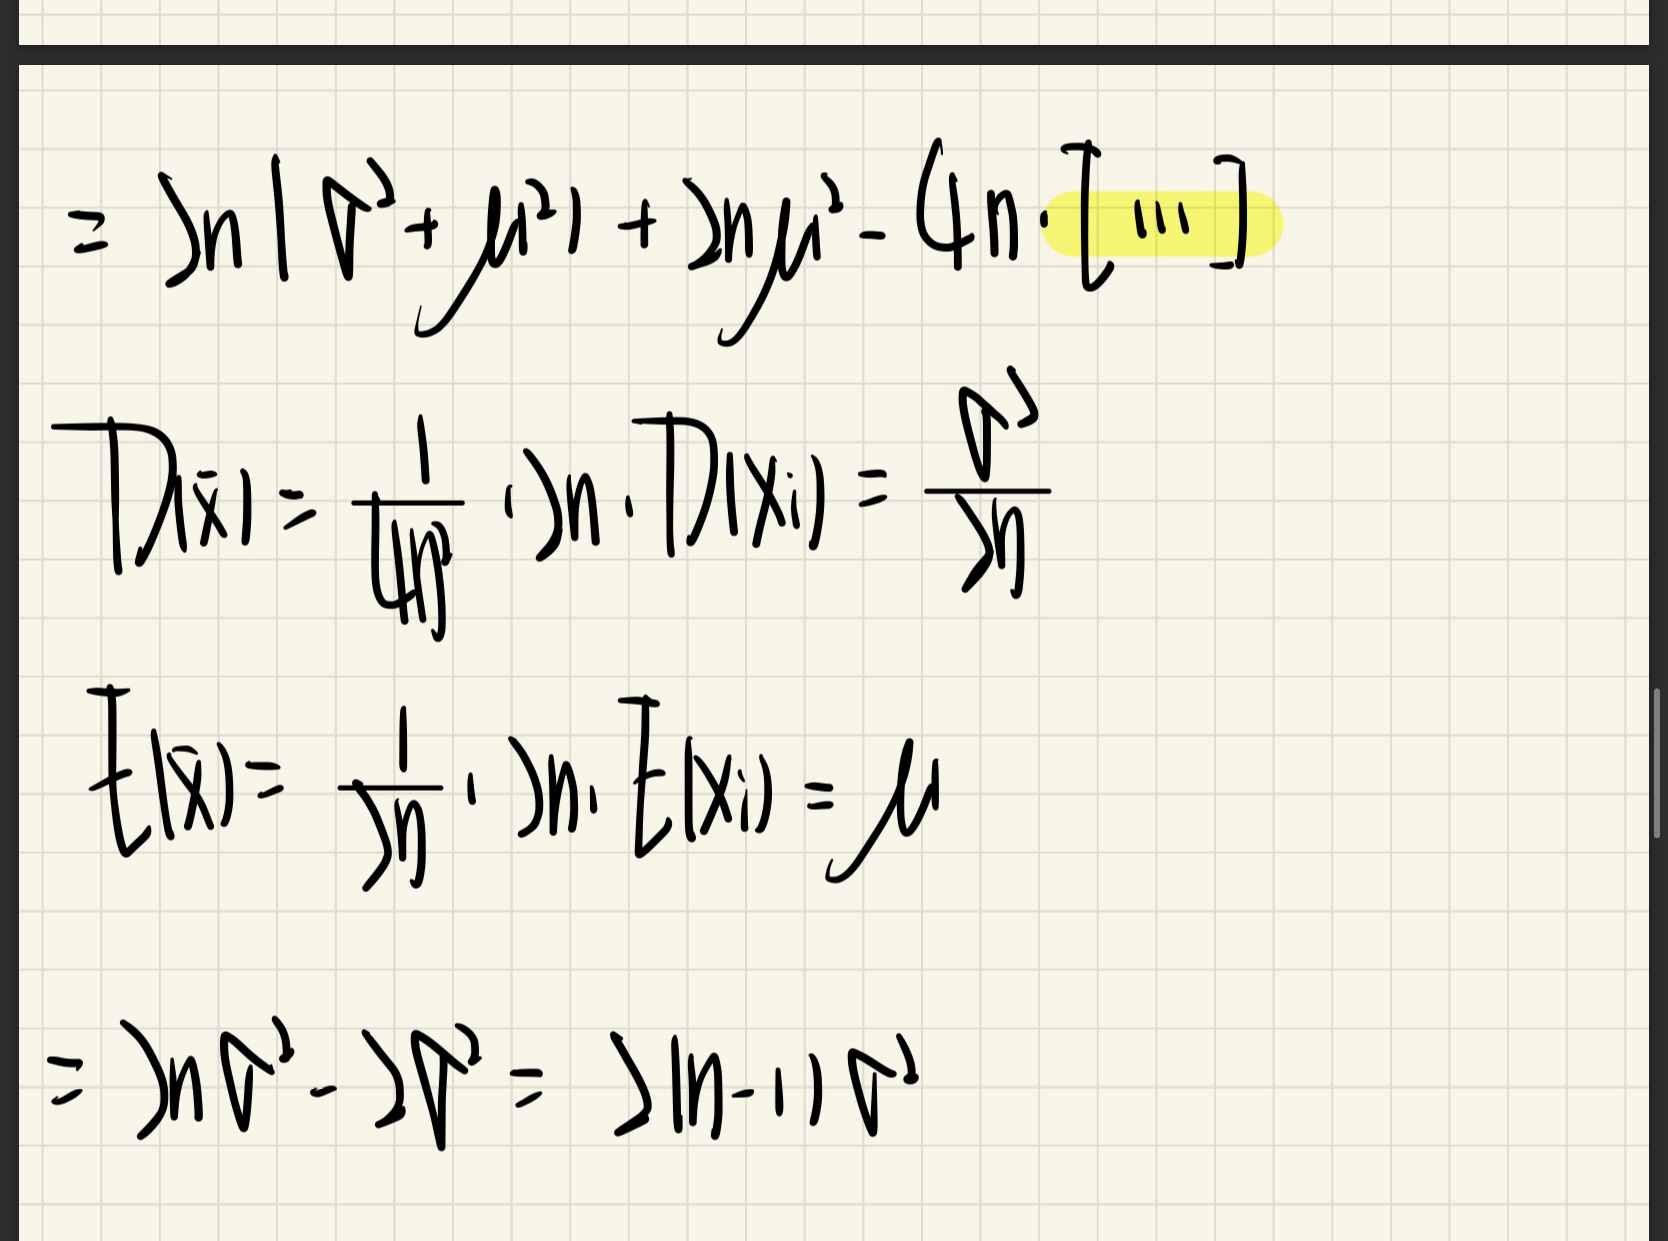 = 2n(σ²+μ²)+2nμ²-4n·[...]
D(x̄)= 1/4n² ·2n·D(Xi)= σ²/2n
E(x̄)= 1/2n ·2n·E(Xi)= μ
= 2nσ²-2σ²= 2(n-1)σ²